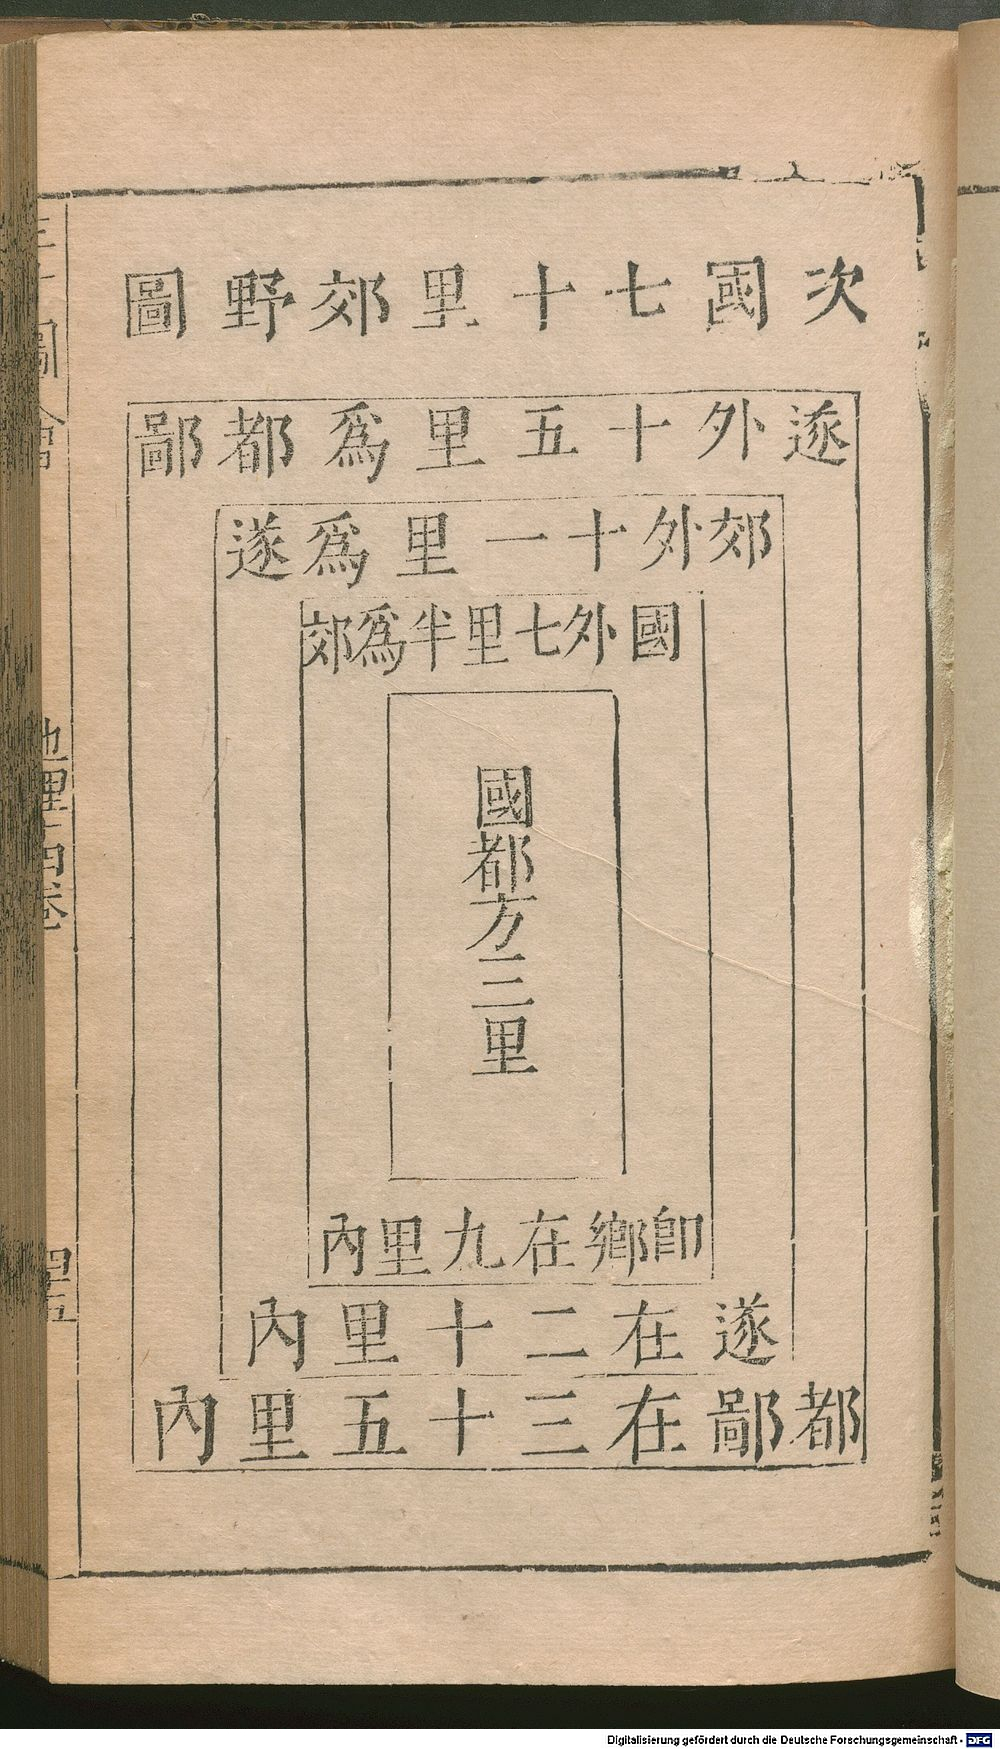 次國七十里郊野圖
遂外十五里爲都鄙
郊外十一里爲遂
國外七里半爲郊
國都方三里
卽鄉在九里內
遂在二十里內
都鄙在三十五里內
圖會
地理十四卷
四五
Digitalisierung gefördert durch die Deutsche Forschungsgemeinschaft - DFG